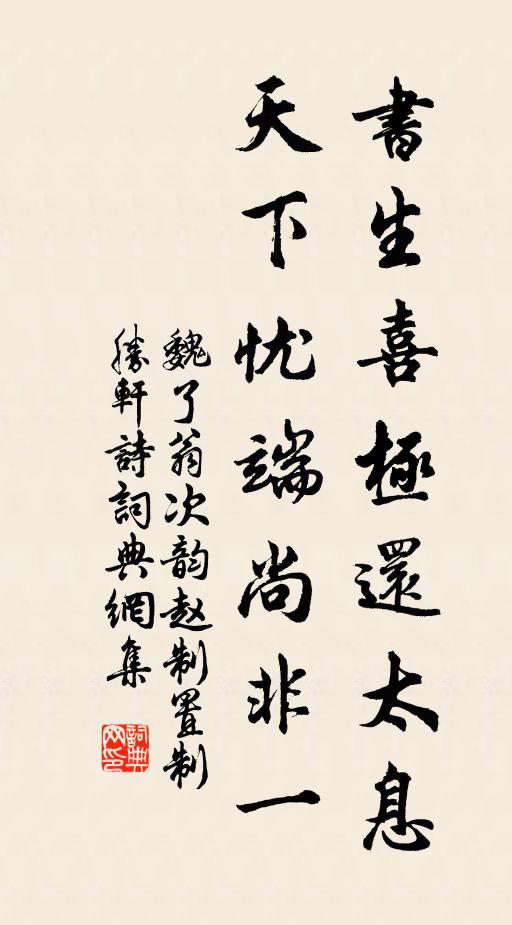 書生喜極還太息
天下忧端尚非一
魏了翁次韵赵制置制
勝軒詩詞典網集
詞典
网印